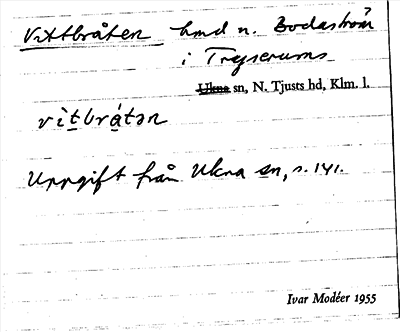 Vittbråten hmd n. Bodaström
i Tryserums
Ukna sn, N. Tjusts hd, Klm. l.
vìtbrátən
Uppgift från Ukna sn, s. 141.
Ivar Modéer 1955